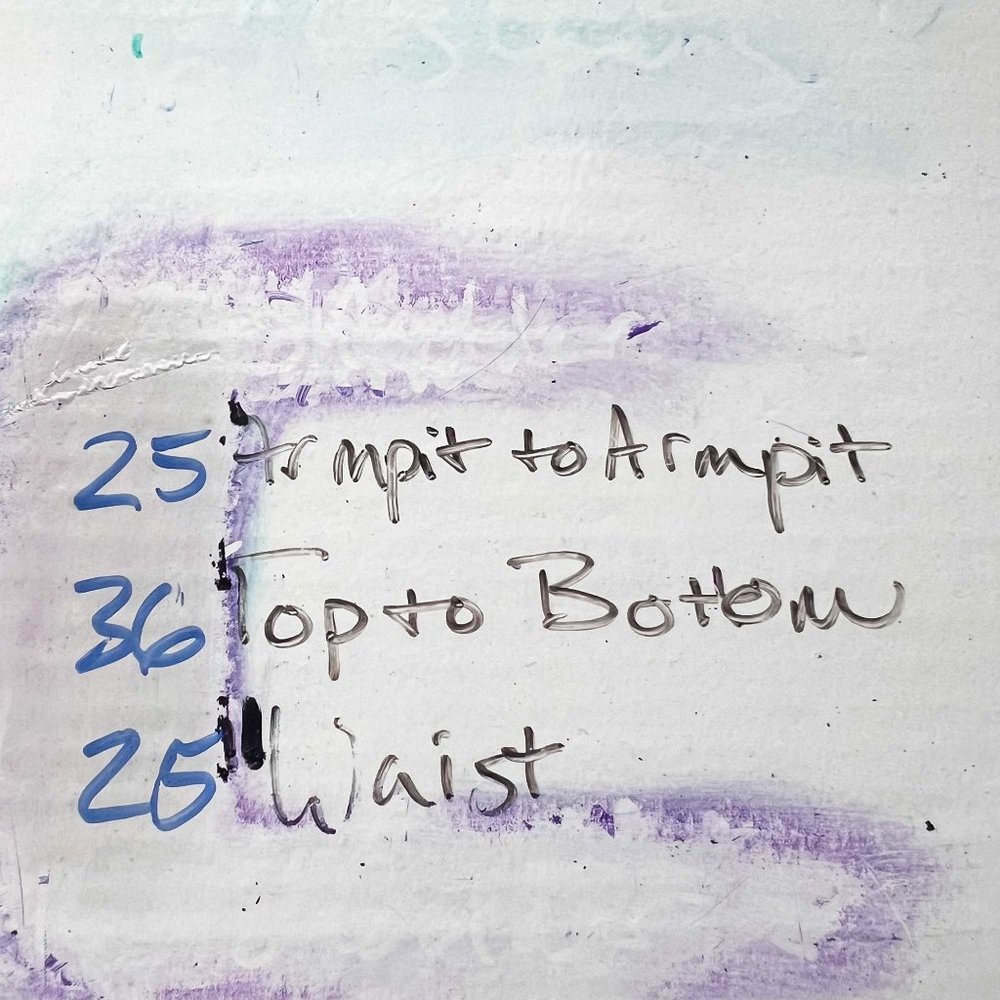 25 Armpit to Armpit
36 Top to Bottom
25 Waist